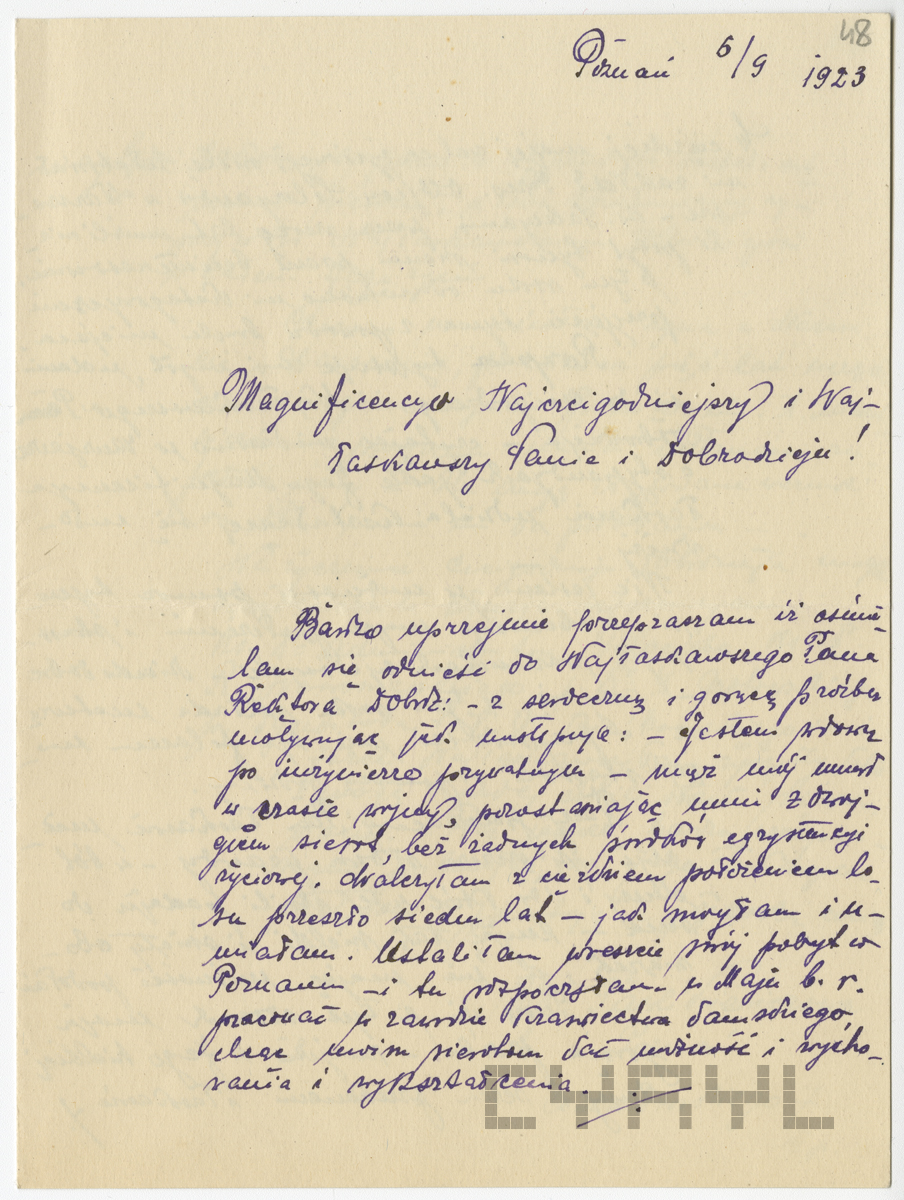 48
Poznań 6/9 1923
Magnificencyo Najczcigodniejszy i Naj-
łaskawszy Panie i Dobrodzieju!
Bardzo uprzejmie przepraszam iż ośmie-
lam się odnieść do Najłaskawszego Pana
Rektora Dobrdz: – z serdeczną i gorącą prośbą
motywując jak następuje: – Jestem wdową
po inżynierze prywatnym – mąż mój umarł
w czasie wojny, pozostawiając mnie z dwoj-
giem sierot, bez żadnych środków egzystencyi
życiowej. Walczyłam z ciężkiem położeniem lo-
su przeszło siedm lat – jak mogłam i u-
miałam. Ustaliłam wreszcie swój pobyt w
Poznaniu – i tu rozpoczęłam w Maju b. r.
pracować w zawodzie krawiectwa damskiego,
chcąc moim sierotom dać możność i wycho-
wania i wykształcenia.
CYRYL